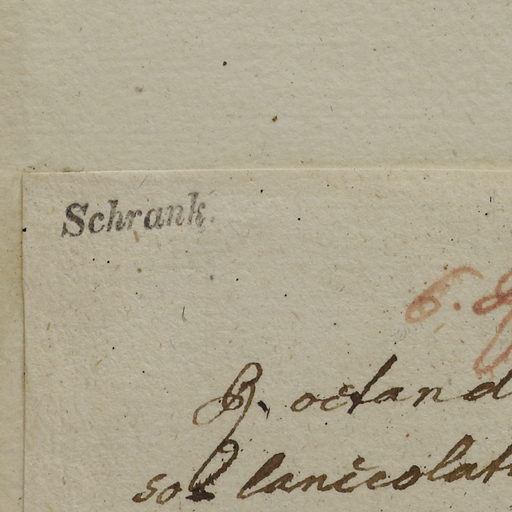 Schrank.
6.
B. octand
lanceolat